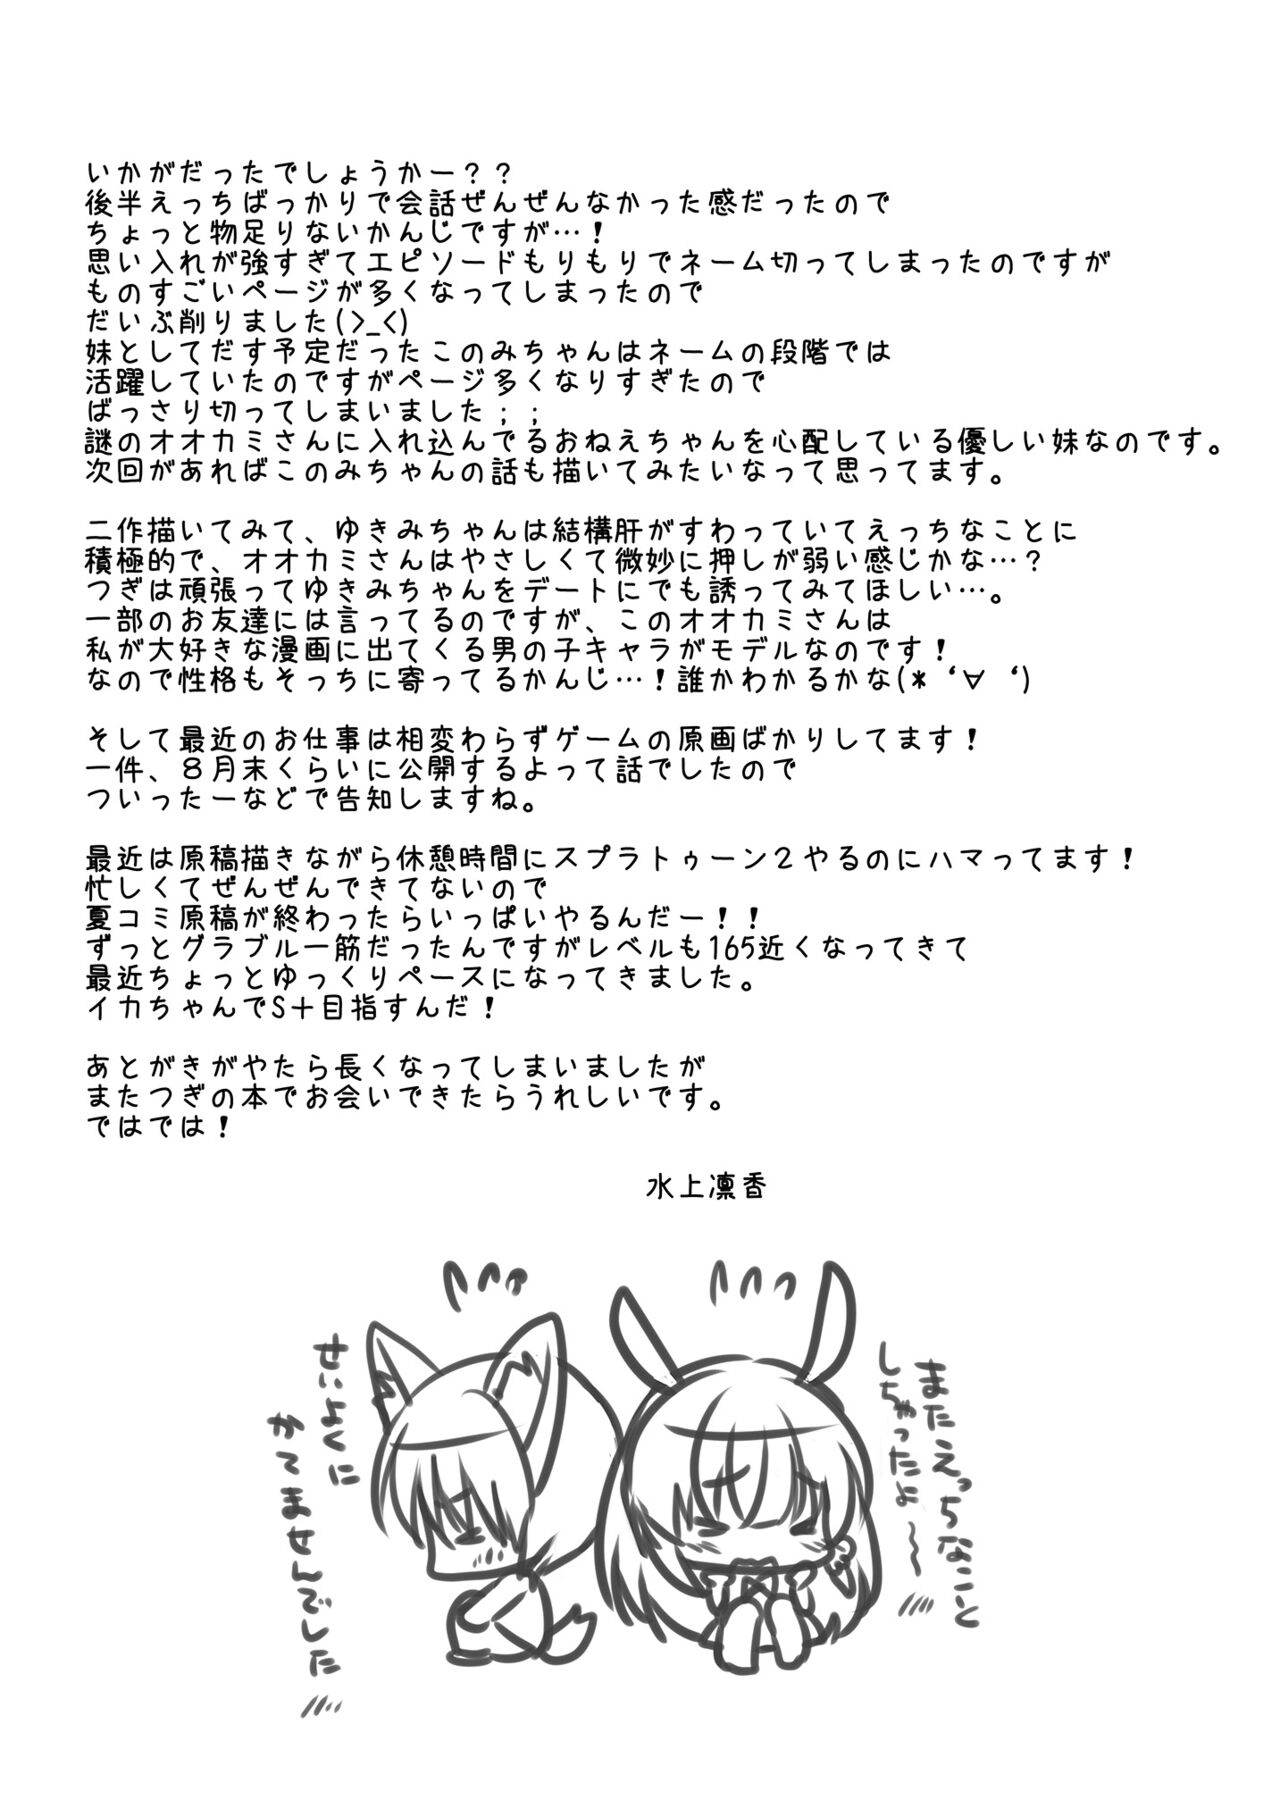 いかがだったでしょうかー？？
後半えっちばっかりで会話ぜんぜんなかった感だったので
ちょっと物足りないかんじですが…！
思い入れが強すぎてエピソードもりもりでネーム切ってしまったのですが
ものすごいページが多くなってしまったので
だいぶ削りました(>_<)
妹としてだす予定だったこのみちゃんはネームの段階では
活躍していたのですがページ多くなりすぎたので
ばっさり切ってしまいました；；
謎のオオカミさんに入れ込んでるおねえちゃんを心配している優しい妹なのです。
次回があればこのみちゃんの話も描いてみたいなって思ってます。

二作描いてみて、ゆきみちゃんは結構肝がすわっていてえっちなことに
積極的で、オオカミさんはやさしくて微妙に押しが弱い感じかな…？
つぎは頑張ってゆきみちゃんをデートにでも誘ってみてほしい…。
一部のお友達には言ってるのですが、このオオカミさんは
私が大好きな漫画に出てくる男の子キャラがモデルなのです！
なので性格もそっちに寄ってるかんじ…！誰かわかるかな(*‘∀‘)

そして最近のお仕事は相変わらずゲームの原画ばかりしてます！
一件、８月末くらいに公開するよって話でしたので
ついったーなどで告知しますね。

最近は原稿描きながら休憩時間にスプラトゥーン２やるのにハマってます！
忙しくてぜんぜんできてないので
夏コミ原稿が終わったらいっぱいやるんだー！！
ずっとグラブル一筋だったんですがレベルも165近くなってきて
最近ちょっとゆっくりペースになってきました。
イカちゃんでS＋目指すんだ！

あとがきがやたら長くなってしまいましたが
またつぎの本でお会いできたらうれしいです。
ではでは！

水上凛香

またえっちなこと
しちゃったよ～
せいよくに
かてませんでした